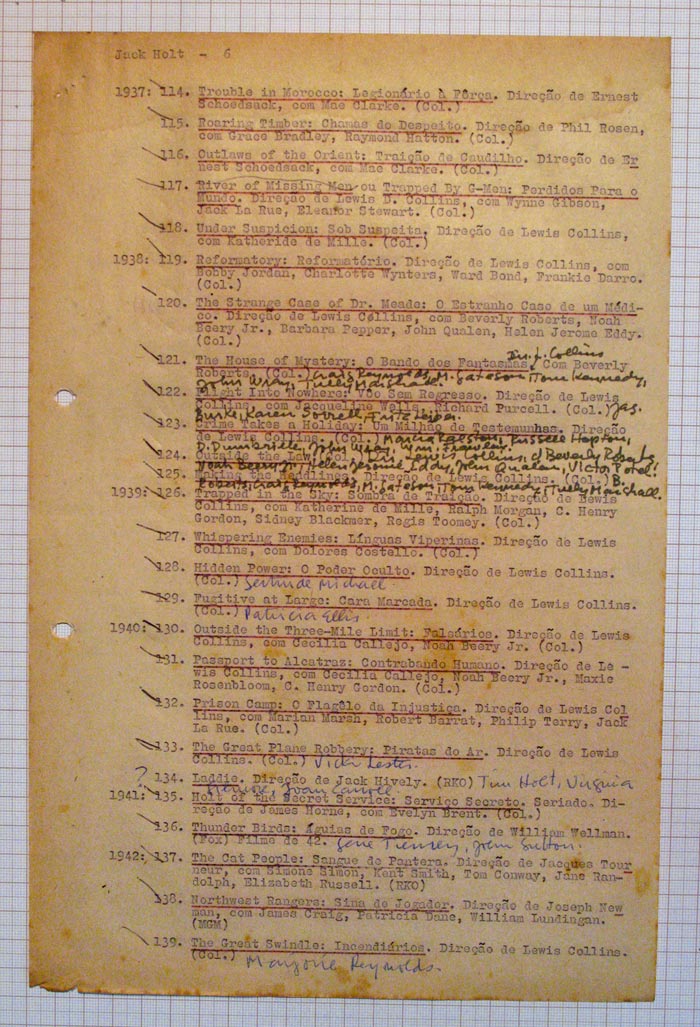 Jack Holt - 6
1937: 114. Trouble in Morocco: Legionário à Fôrça. Direção de Ernest
Schoedsack, com Mae Clarke. (Col.)
115. Roaring Timber: Chamas do Despeito. Direção de Phil Rosen,
com Grace Bradley, Raymond Hatton. (Col.)
116. Outlaws of the Orient: Traição de Caudilho. Direção de Er
nest Schoedsack, com Mae Clarke. (Col.)
117. River of Missing Men ou Trapped By G-Men: Perdidos Para o
Mundo. Direção de Lewis D. Collins, com Wynne Gibson,
Jack La Rue, Eleanor Stewart. (Col.)
118. Under Suspicion: Sob Suspeita. Direção de Lewis Collins,
com Katheride de Mille. (Col.)
1938: 119. Reformatory: Reformatório. Direção de Lewis Collins, com
Bobby Jordan, Charlotte Wynters, Ward Bond, Frankie Darro.
(Col.)
120. The Strange Case of Dr. Meade: O Estranho Caso de um Médi-
co. Direção de Lewis Collins, com Beverly Roberts, Noah
Beery Jr., Barbara Pepper, John Qualen, Helen Jerome Eddy.
(Col.)
Dir. L. Collins
121. The House of Mystery: O Bando dos Fantasmas. Com Beverly
Roberts. (Col.) Craig Reynolds, Tom Kennedy,
John Wray, Tully Marshall.
122. Flight Into Nowhere: Vôo Sem Regresso. Direção de Lewis
Collins, com Jacqueline Wells, Richard Purcell. (Col.) Jas.
Burke, Karen Sorrell, Fritz Leiber.
123. Crime Takes a Holiday: Um Milhão de Testemunhas. Direção
de Lewis Collins. (Col.) Marcia Ralston, Russell Hopton,
D. Dumbrille, John Wray, Wm.
124. Outside the Law. Dir. Lewis Collins, c/ Beverly Roberts
Noah Beery Jr, Helen Jerome Eddy, John Qualen, Victor Potel.
125. Making the Headlines. Direção de Lewis Collins. (Col.) B.
Roberts, Craig Reynolds, Tom Kennedy, Tully Marshall.
1939: 126. Trapped in the Sky: Sombra de Traição. Direção de Lewis
Collins, com Katherine de Mille, Ralph Morgan, C. Henry
Gordon, Sidney Blackmer, Regis Toomey. (Col.)
127. Whispering Enemies: Línguas Viperinas. Direção de Lewis
Collins, com Dolores Costello. (Col.)
128. Hidden Power: O Poder Oculto. Direção de Lewis Collins.
(Col.) Gertrude Michael
129. Fugitive at Large: Cara Marcada. Direção de Lewis Collins.
(Col.) Patricia Ellis.
1940: 130. Outside the Three-Mile Limit: Falsários. Direção de Lewis
Collins, com Cecilia Callejo, Noah Beery Jr. (Col.)
131. Passport to Alcatraz: Contrabando Humano. Direção de Le -
wis Collins, com Cecilia Callejo, Noah Beery Jr., Maxie
Rosenbloom, C. Henry Gordon. (Col.)
132. Prison Camp: O Flagêlo da Injustiça. Direção de Lewis Col
lins, com Marian Marsh, Robert Barrat, Philip Terry, Jack
La Rue. (Col.)
133. The Great Plane Robbery: Piratas do Ar. Direção de Lewis
Collins. (Col.) Vicki Lester.
? 134. Laddie. Direção de Jack Hively. (RKO) Tim Holt, Virginia
Gilmore, Joan Carroll
1941: 135. Holt of the Secret Service: Serviço Secreto. Seriado. Di-
reção de James Horne, com Evelyn Brent. (Col.)
136. Thunder Birds: Águias de Fogo. Direção de William Wellman.
(Fox) Filme de 42. Gene Tierney, John Sutton.
1942: 137. The Cat People: Sangue de Pantera. Direção de Jacques Tour
neur, com Simone Simon, Kent Smith, Tom Conway, Jane Ran-
dolph, Elizabeth Russell. (RKO)
138. Northwest Rangers: Sina de Jogador. Direção de Joseph New
man, com James Craig, Patricia Dane, William Lundingan.
(MGM)
139. The Great Swindle: Incendiários. Direção de Lewis Collins.
(Col.) Marjorie Reynolds.